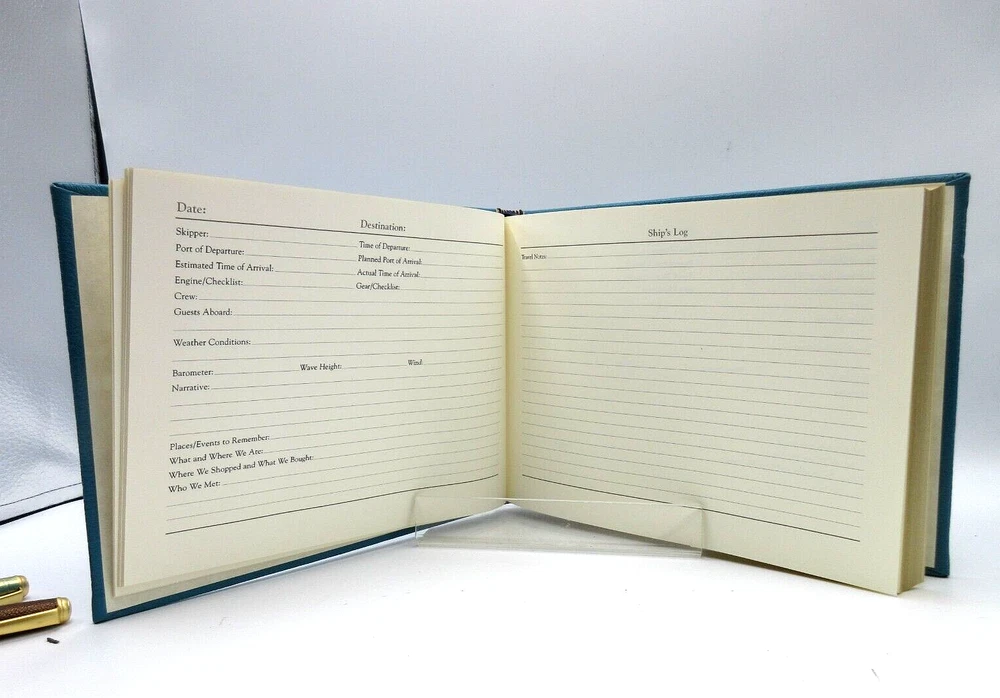 Date:
Destination:
Skipper:
Time of Departure:
Port of Departure:
Planned Port of Arrival:
Estimated Time of Arrival:
Actual Time of Arrival:
Engine/Checklist:
Gear/Checklist:
Crew:
Guests Aboard:
Weather Conditions:
Barometer: Wave Height: Wind:
Narrative:
Places/Events to Remember:
What and Where We Are:
Where We Shopped and What We Bought:
Who We Met:
Ship's Log
Travel Notes: